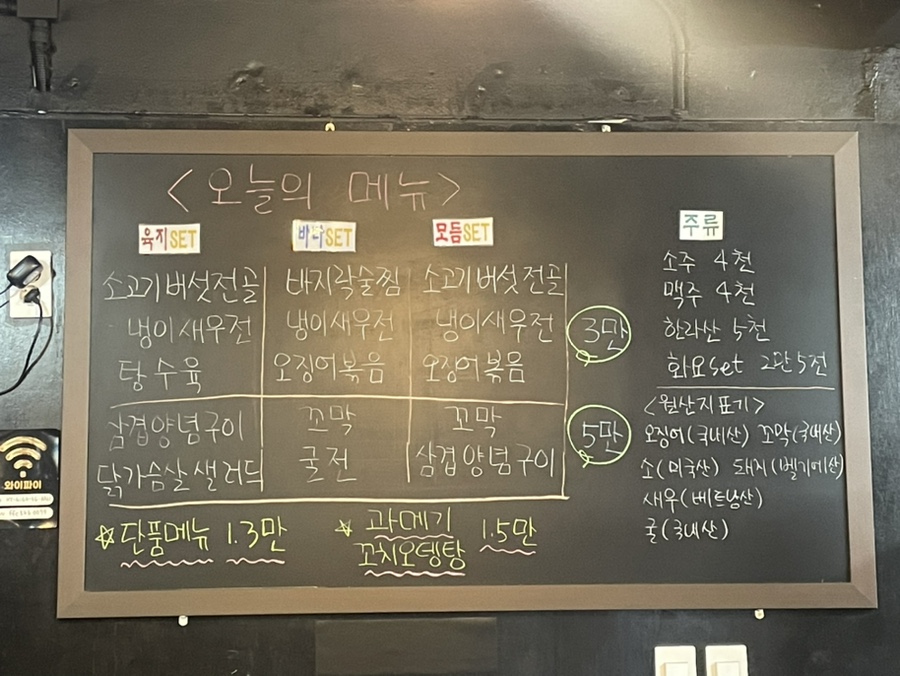 <오늘의 메뉴>
육지SET 바다SET 모듬SET
소고기버섯전골 바지락술찜 소고기버섯전골
냉이새우전 냉이새우전 냉이새우전
탕수육 오징어볶음 오징어볶음
3만
삼겹양념구이 꼬막 꼬막
닭가슴살샐러드 굴전 삼겹양념구이
5만
☆단품메뉴 1.3만
☆과메기
꼬치오뎅탕 1.5만
주류
소주 4천
맥주 4천
한라산 5천
화요set 2만5천
<원산지표기>
오징어(국내산) 꼬막(국내산)
소(미국산) 돼지(벨기에산)
새우(베트남산)
굴(국내산)
와이파이